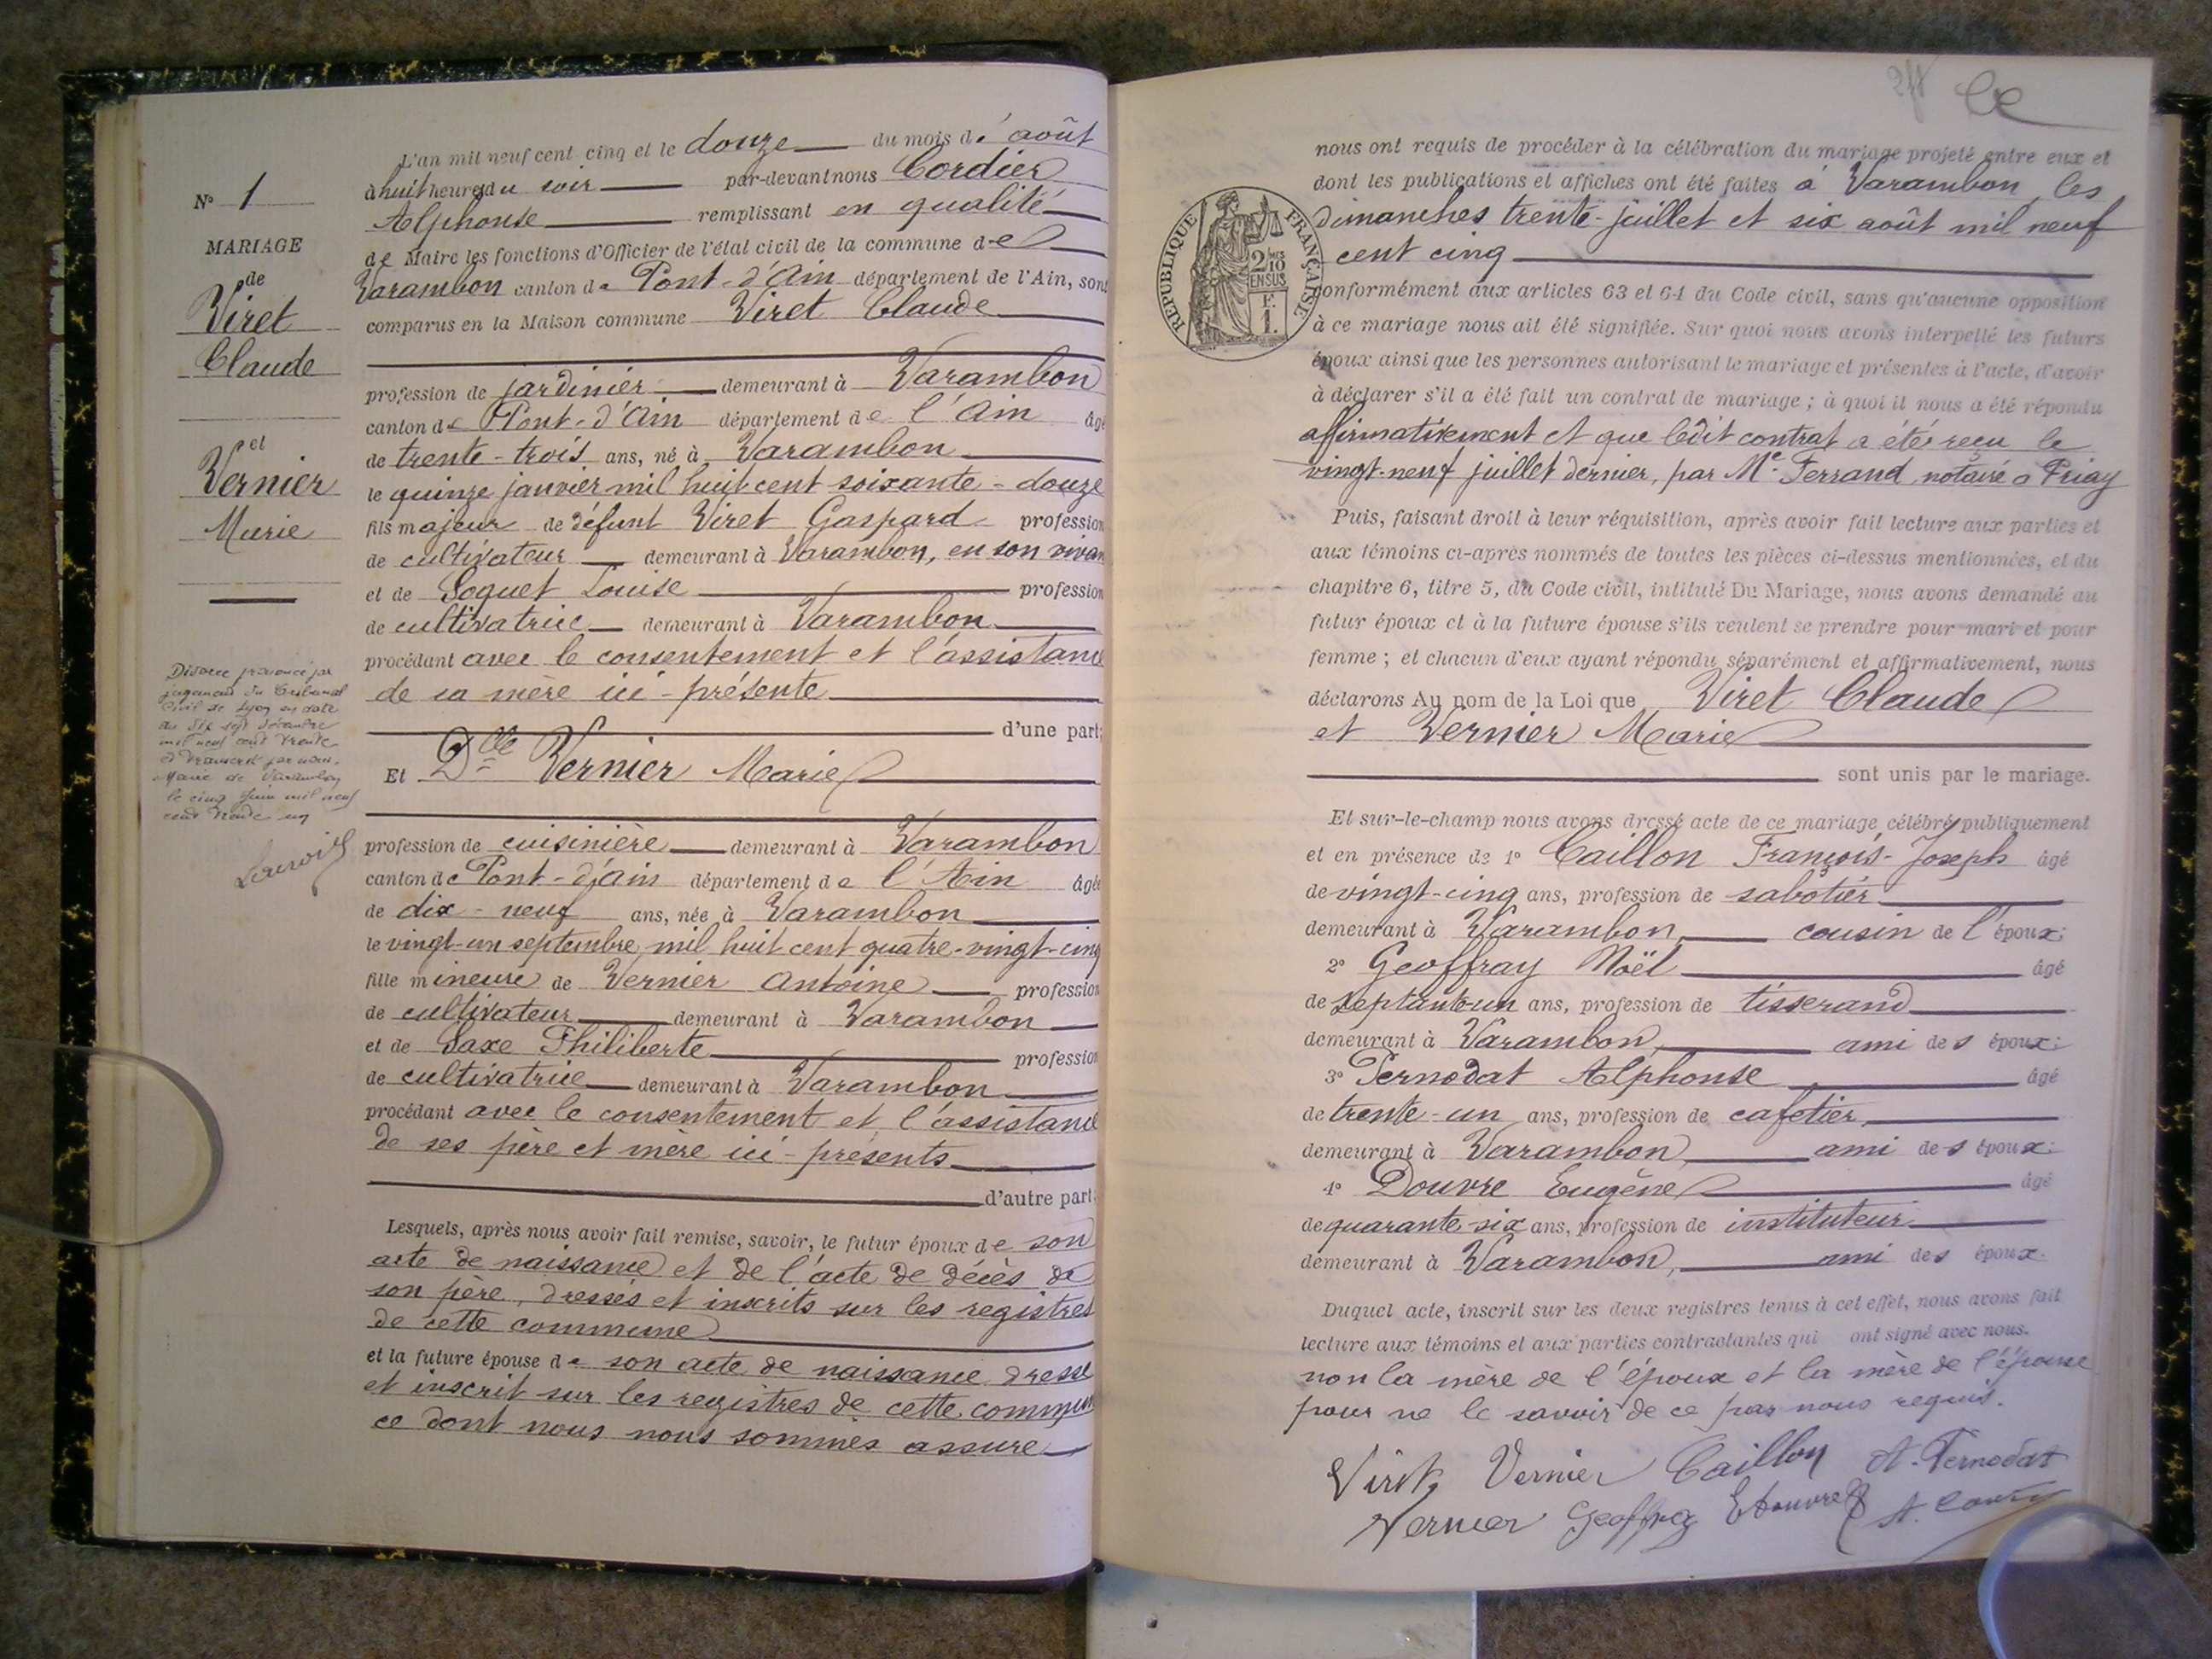 N° 1
MARIAGE
de
Viret
Claude
et
Vernier
Marie
Divorce prononcé par
jugement du Tribunal
Civil de Lyon en date
du dix sept décembre
mil neuf cent trente
et transcrit par nous,
Maire de Varambon
le cinq Juin mil neuf
cent trente un
L'an mil neuf cent cinq et le douze du mois d'août
à huit heures du soir par-devant nous Cordier
Alphonse remplissant en qualité
de Maire les fonctions d'Officier de l'état civil de la commune de
Varambon canton de Pont-d'Ain département de l'Ain, sont
comparus en la Maison commune Viret Claude
profession de jardinier demeurant à Varambon
canton de Pont-d'Ain département de l'Ain âgé
de trente-trois ans, né à Varambon
le quinze janvier mil huit cent soixante-douze
fils majeur de défunt Viret Gaspard profession
de cultivateur demeurant à Varambon, en son vivan
et de Soquet Louise profession
de cultivatrice demeurant à Varambon
procédant avec le consentement et l'assistance
de sa mère ici-présente
d'une part;
Et Dlle Vernier Marie
profession de cuisinière demeurant à Varambon
canton de Pont-d'Ain département de l'Ain âgée
de dix-neuf ans, née à Varambon
le vingt-un septembre mil huit cent quatre-vingt-cinq
fille mineure de Vernier Antoine profession
de cultivateur demeurant à Varambon
et de Saxe Philiberte profession
de cultivatrice demeurant à Varambon
procédant avec le consentement et l'assistance
de ses père et mère ici-présents
d'autre part.
Lesquels, après nous avoir fait remise, savoir, le futur époux de son
acte de naissance et de l'acte de décès de
son père, dressés et inscrits sur les registres
de cette commune
et la future épouse de son acte de naissance dressé
et inscrit sur les registres de cette commune
ce dont nous nous sommes assuré
nous ont requis de procéder à la célébration du mariage projeté entre eux et
dont les publications et affiches ont été faites à Varambon, les
dimanches trente-juillet et six août mil neuf
cent cinq
RÉPUBLIQUE FRANÇAISE
2 MES
10
EN SUS
F.
1.
conformément aux articles 63 et 64 du Code civil, sans qu'aucune opposition
à ce mariage nous ait été signifiée. Sur quoi nous avons interpellé les futurs
époux ainsi que les personnes autorisant le mariage et présentes à l'acte, d'avoir
à déclarer s'il a été fait un contrat de mariage ; à quoi il nous a été répondu
affirmativement et que ledit contrat a été reçu le
vingt-neuf juillet dernier, par Me Ferrand, notaire à Priay
Puis, faisant droit à leur réquisition, après avoir fait lecture aux parties et
aux témoins ci-après nommés de toutes les pièces ci-dessus mentionnées, et du
chapitre 6, titre 5, du Code civil, intitulé Du Mariage, nous avons demandé au
futur époux et à la future épouse s'ils veulent se prendre pour mari et pour
femme ; et chacun d'eux ayant répondu séparément et affirmativement, nous
déclarons Au nom de la Loi que Viret Claude
et Vernier Marie
sont unis par le mariage.
Et sur-le-champ nous avons dressé acte de ce mariage célébré publiquement
et en présence de 1° Caillon François-Joseph âgé
de vingt-cinq ans, profession de sabotier
demeurant à Varambon, cousin de l'époux;
2° Geoffray Noël âgé
de septante-un ans, profession de tisserand
demeurant à Varambon, ami des époux;
3° Pernodat Alphonse âgé
de trente-un ans, profession de cafetier,
demeurant à Varambon, ami des époux;
4° Douvre Eugène âgé
de quarante-six ans, profession de instituteur
demeurant à Varambon, ami des époux.
Duquel acte, inscrit sur les deux registres tenus à cet effet, nous avons fait
lecture aux témoins et aux parties contractantes qui ont signé avec nous.
non la mère de l'époux et la mère de l'épouse
pour ne le savoir de ce par nous requis.
Viret Vernier Caillon A. Pernodat
Vernier Geoffray E Douvre